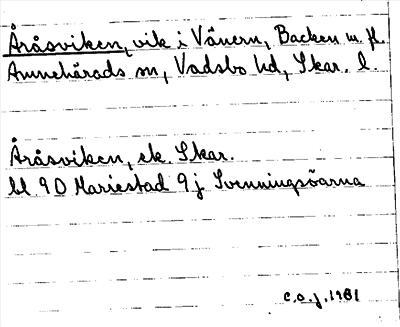 Åråsviken, vik i Vänern, Backen m. fl.
Amnehärads sn, Vadsbo hd, Skar. l.
Åråsviken, ek. Skar.
bl 9D Mariestad 9j Svenningsöarna
c.o.j. 1981